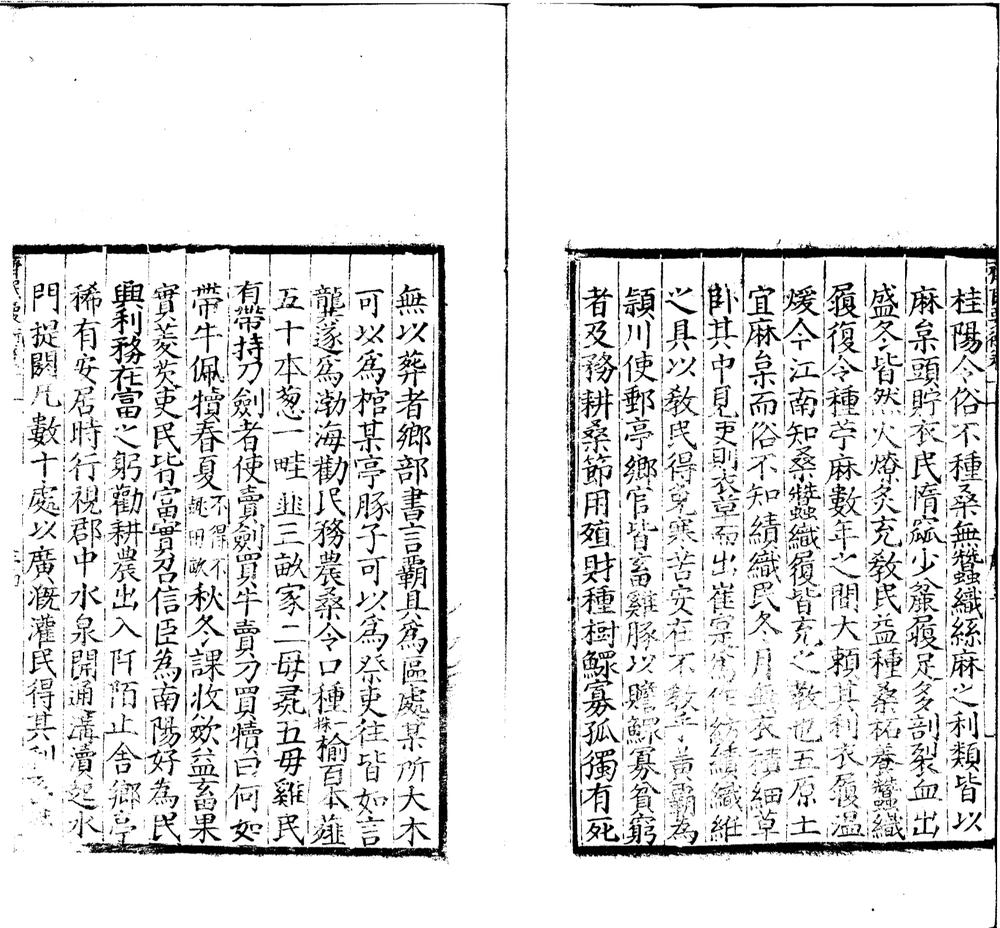 桂陽今俗不種桑無蠶織絲麻之利類皆以
麻枲頭貯衣民惰窳少麄履足多剖裂血出
盛冬皆然火燎炙充教民益種桑柘養蠶織
履復令種苧麻數年之間大賴其利衣履溫
煖今江南知桑蠶織履皆充之敎也五原土
宜麻枲而俗不知績織民冬月無衣積細草
臥其中見吏則衣草而出崔寔爲作紡績織紝
之具以敎民得免寒苦安在不敎乎黃霸為
頴川使郵亭鄉官皆畜雞豚以贍鰥寡貧窮
者及務耕桑節用殖財種樹鰥寡孤獨有死
無以葬者鄉部書言霸具為區處某所大木
可以爲棺某亭豚子可以為祭吏往皆如言
龔遂爲渤海勸民務農桑令口種一株榆百本薤
五十本蔥一畦韭三畝家二母彘五母雞民
有帶持刀劍者使賣劍買牛賣刀買犢曰何如
帶牛佩犢春夏不得不趍田畝秋冬課收歛益畜果
實菱芡吏民皆富實召信臣為南陽好為民
興利務在富之躬勸耕農出入阡陌止舍鄉亭
稀有安居時行視郡中水泉開通溝瀆起水
門提閼凡數十處以廣溉灌民得其利